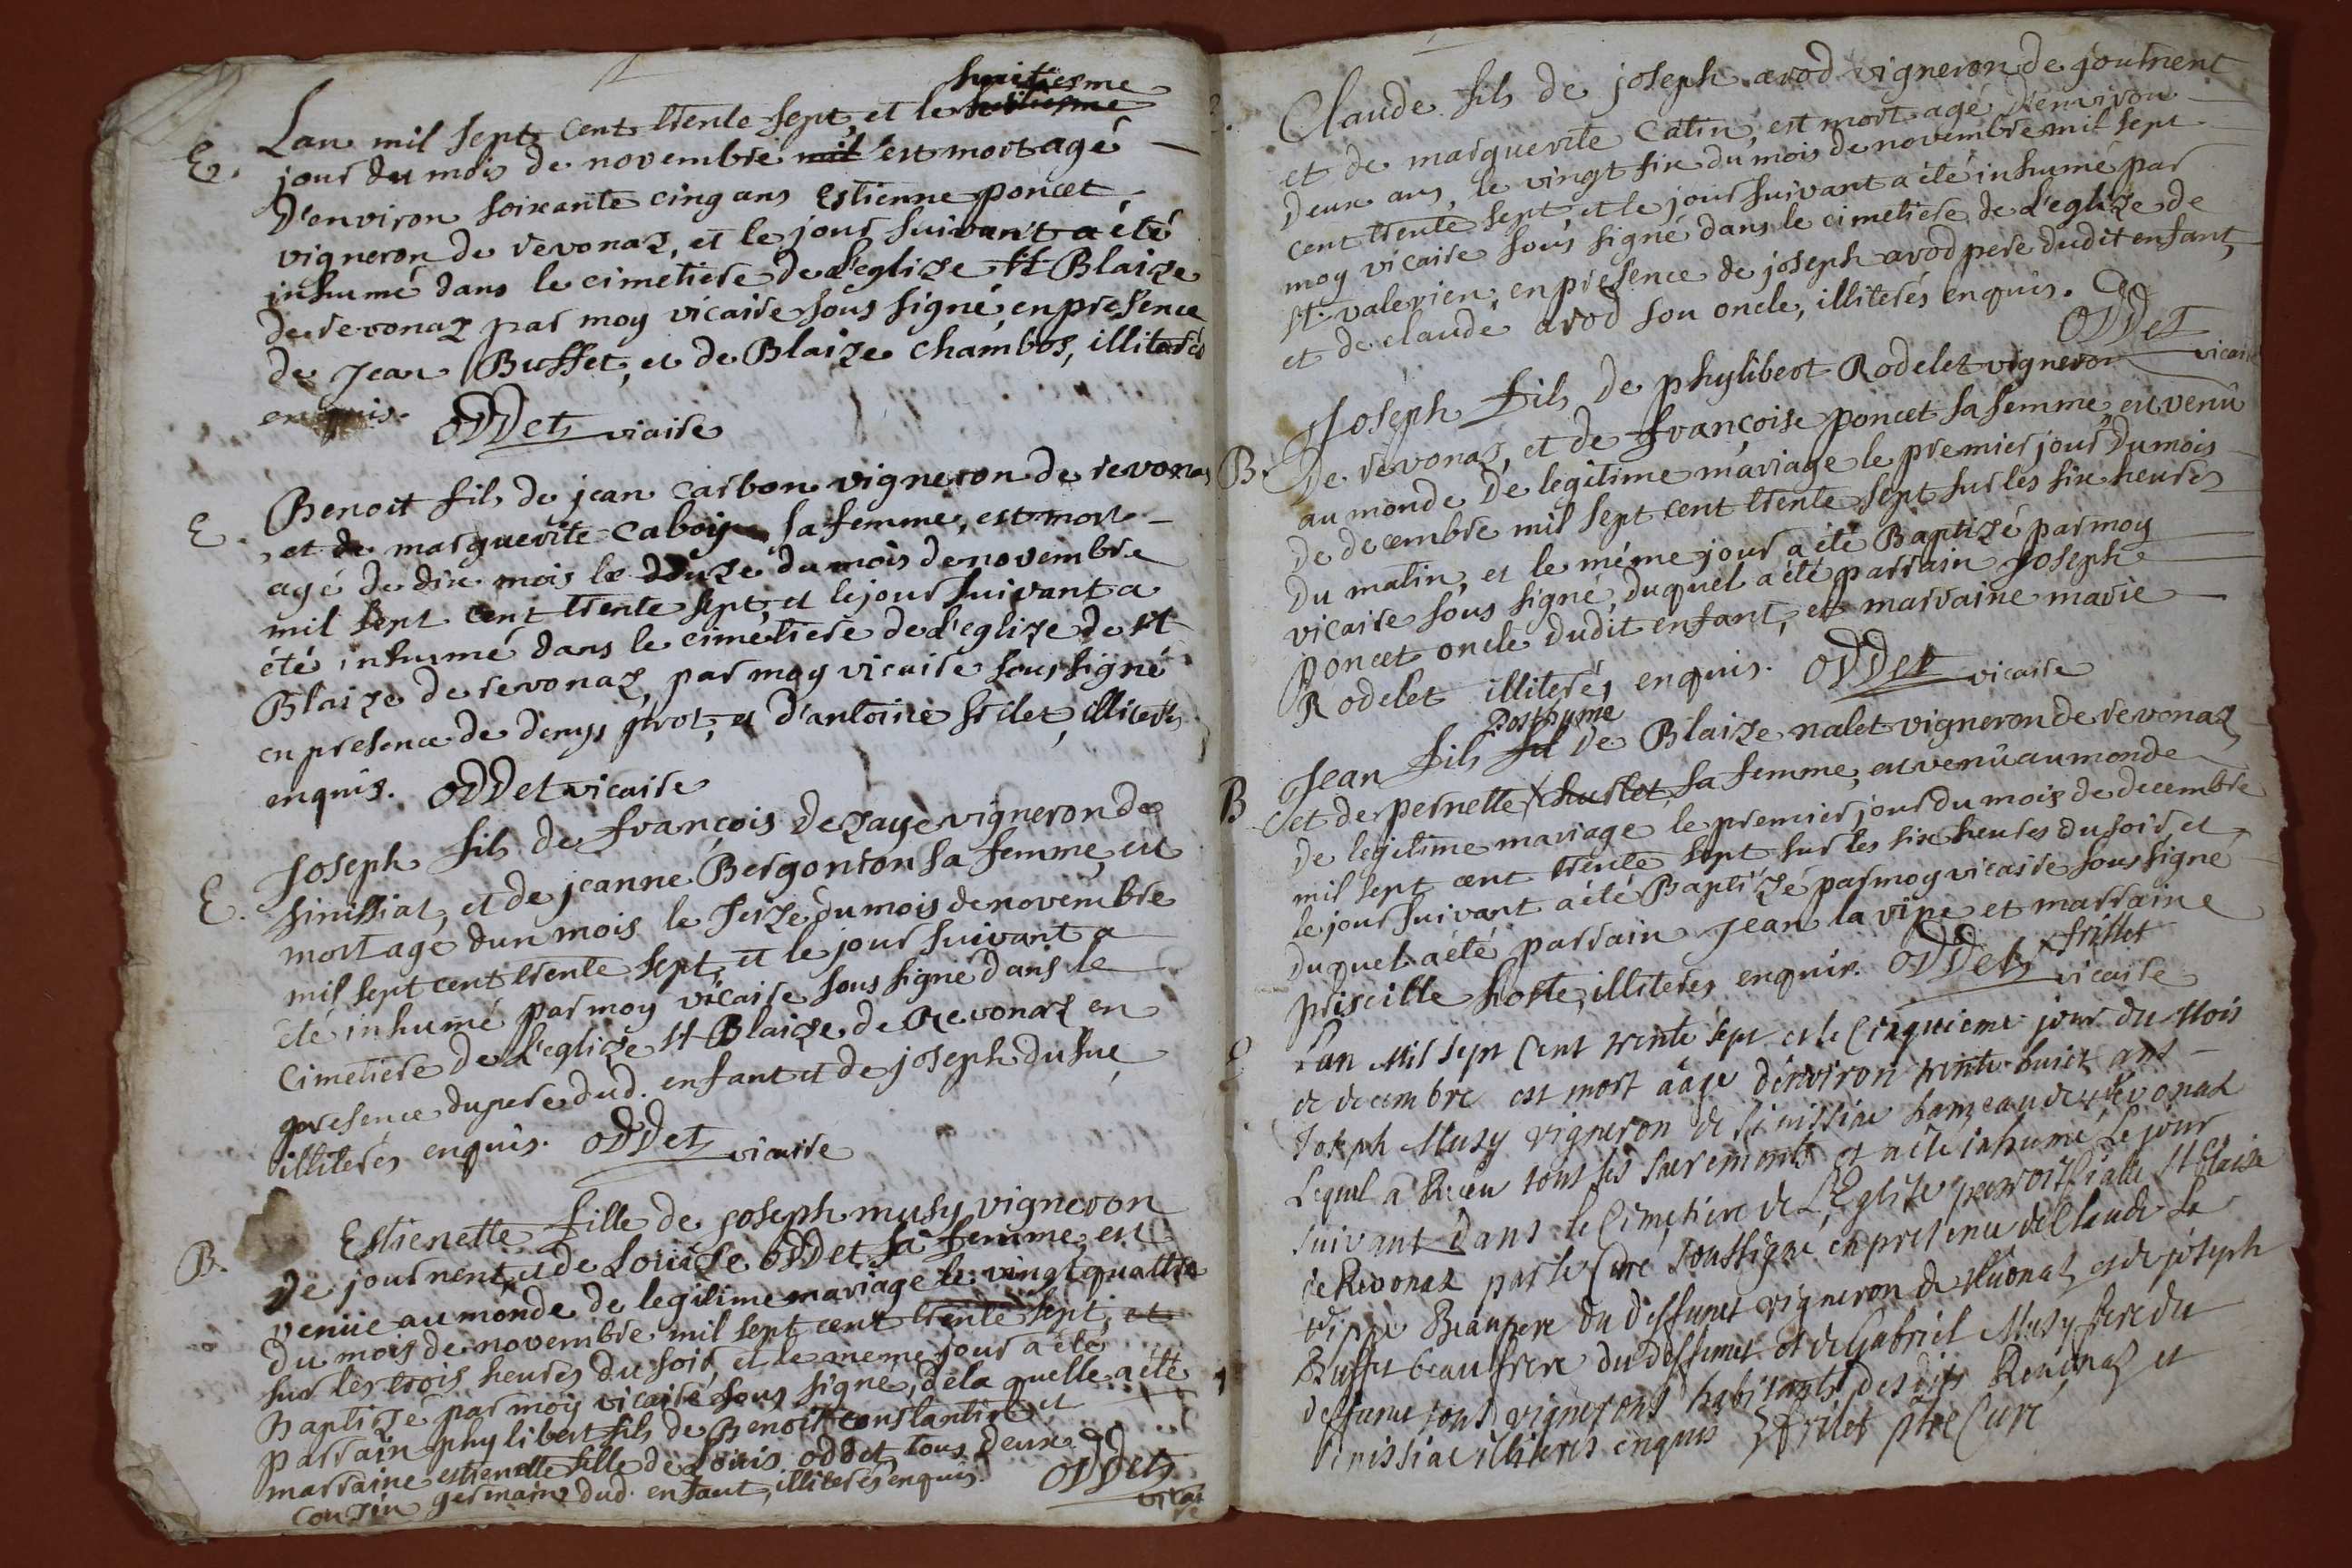 huitiesme
E. Lan mil sept cent trente sept, et le huitiesme
jour du mois de novembre mil est mort agé
D'environ soixante cinq ans Estienne poncet,
vigneron de revonaz, et le jour suivant a été
inhumé dans le cimetiere de L'eglize St Blaize
de revonaz par moy vicaire sous signé, en presence
de Jean Buffet, et de Blaize Chambos, illiterés
enquis. ODDet vicaire
E. Benoit fils de jean Carbon vigneron de revonaz
, et de marguerite sa femme, est mort
agé de dix mois le douze du mois de novembre
mil sept cent trente sept, et le jour suivant a
été inhumé dans le cimetiere de L'eglize de St
Blaize de revonaz, par moy vicaire sous signé
en presence de denys et d'antoine frilet, illiterés
enquis. ODDet vicaire
E. Joseph fils de françois Dezaye vigneron de
simissiat, et de jeanne Bergonson sa femme, est
mort agé dun mois le seize du mois de novembre
mil sept cent trente sept, et le jour suivant a
été inhumé par moy vicaire sous signé dans le
Cimetiere de L'eglize St Blaize de Revonaz en
presence du pere dud. enfant et de joseph
illiterés enquis. ODDet vicaire
B. Estienette fille de joseph musy vigneron
De journent, et de Louise ODDet sa femme, est
venüe au monde de legitime mariage le vingt quattre
du mois de novembre mil sept cent trente sept, et
sur les trois heures du soir, et le meme jour a été
Baptizé par moy vicaire sous signé, de la quelle a été
parrain phylibert fils de Benoit Constantin et
marraine estienette fille de Loüis ODDet tous deux
Cousin germains dud. enfant, illiterés enquis. ODDet
vicaire
Claude fils de joseph avod vigneron de journent
et de marguerite Catin, est mort agé d'environ
Deux ans, le vingt six du mois de novembre mil sept
cent trente sept, et le jour suivant a été inhumé par
moy vicaire sous signé dans le cimetiere de L'eglize de
St. valerien, en presence de joseph avod pere dudit enfant,
et de claude avod son oncle, illiterés enquis.
ODDet vicaire
Joseph fils de phylibert Rodelet vigneron
B. De revonaz, et de françoise poncet sa femme, est venû
au monde De legitime mariage le premier jour du mois
De decembre mil sept cent trente sept sur les six heures
Du matin, et le méme jour a été Baptizé par moy
vicaire sous signé, duquel a été parrain Joseph
poncet oncle dudit enfant, et marraine marie
Rodelet illiterés enquis. ODDet vicaire
posthume
Jean fils de Blaize nalet vigneron de revonaz
B et de pernette sa femme, est venû au monde
De legitime mariage le premier jour du mois de decembre
mil sept cent trente sept sur les six heures du soir, et
le jour suivant a été Baptizé par moy vicaire sous signé
Duquel a été parrain Jean la vipe et marraine
frillet
priscille hoste, illiterés enquis. ODDet vicaire
E Lan Mil sept Cent trente sept et le Cinquieme jour du Mois
de decembre est mort aage denviron trente huict ans
Joseph Musy vigneron de simissiat hameau de Revonaz
Lequel a Receu tous les sacrements et a ete inhumé Le jour
suivant Dans le Cimetiere de L'Eglise paroissialle St Blaise
de Revonaz par le Curé soussigné en presence de Claude La
vippe Beaupere du deffunct vigneron de Revonaz et de joseph
Buffet beaufrere du deffunct et de Gabriel Musy frere du
deffunct tous vignerons habitants desdits Revonaz et
simissiat illiterés enquis frilet ptre Curé